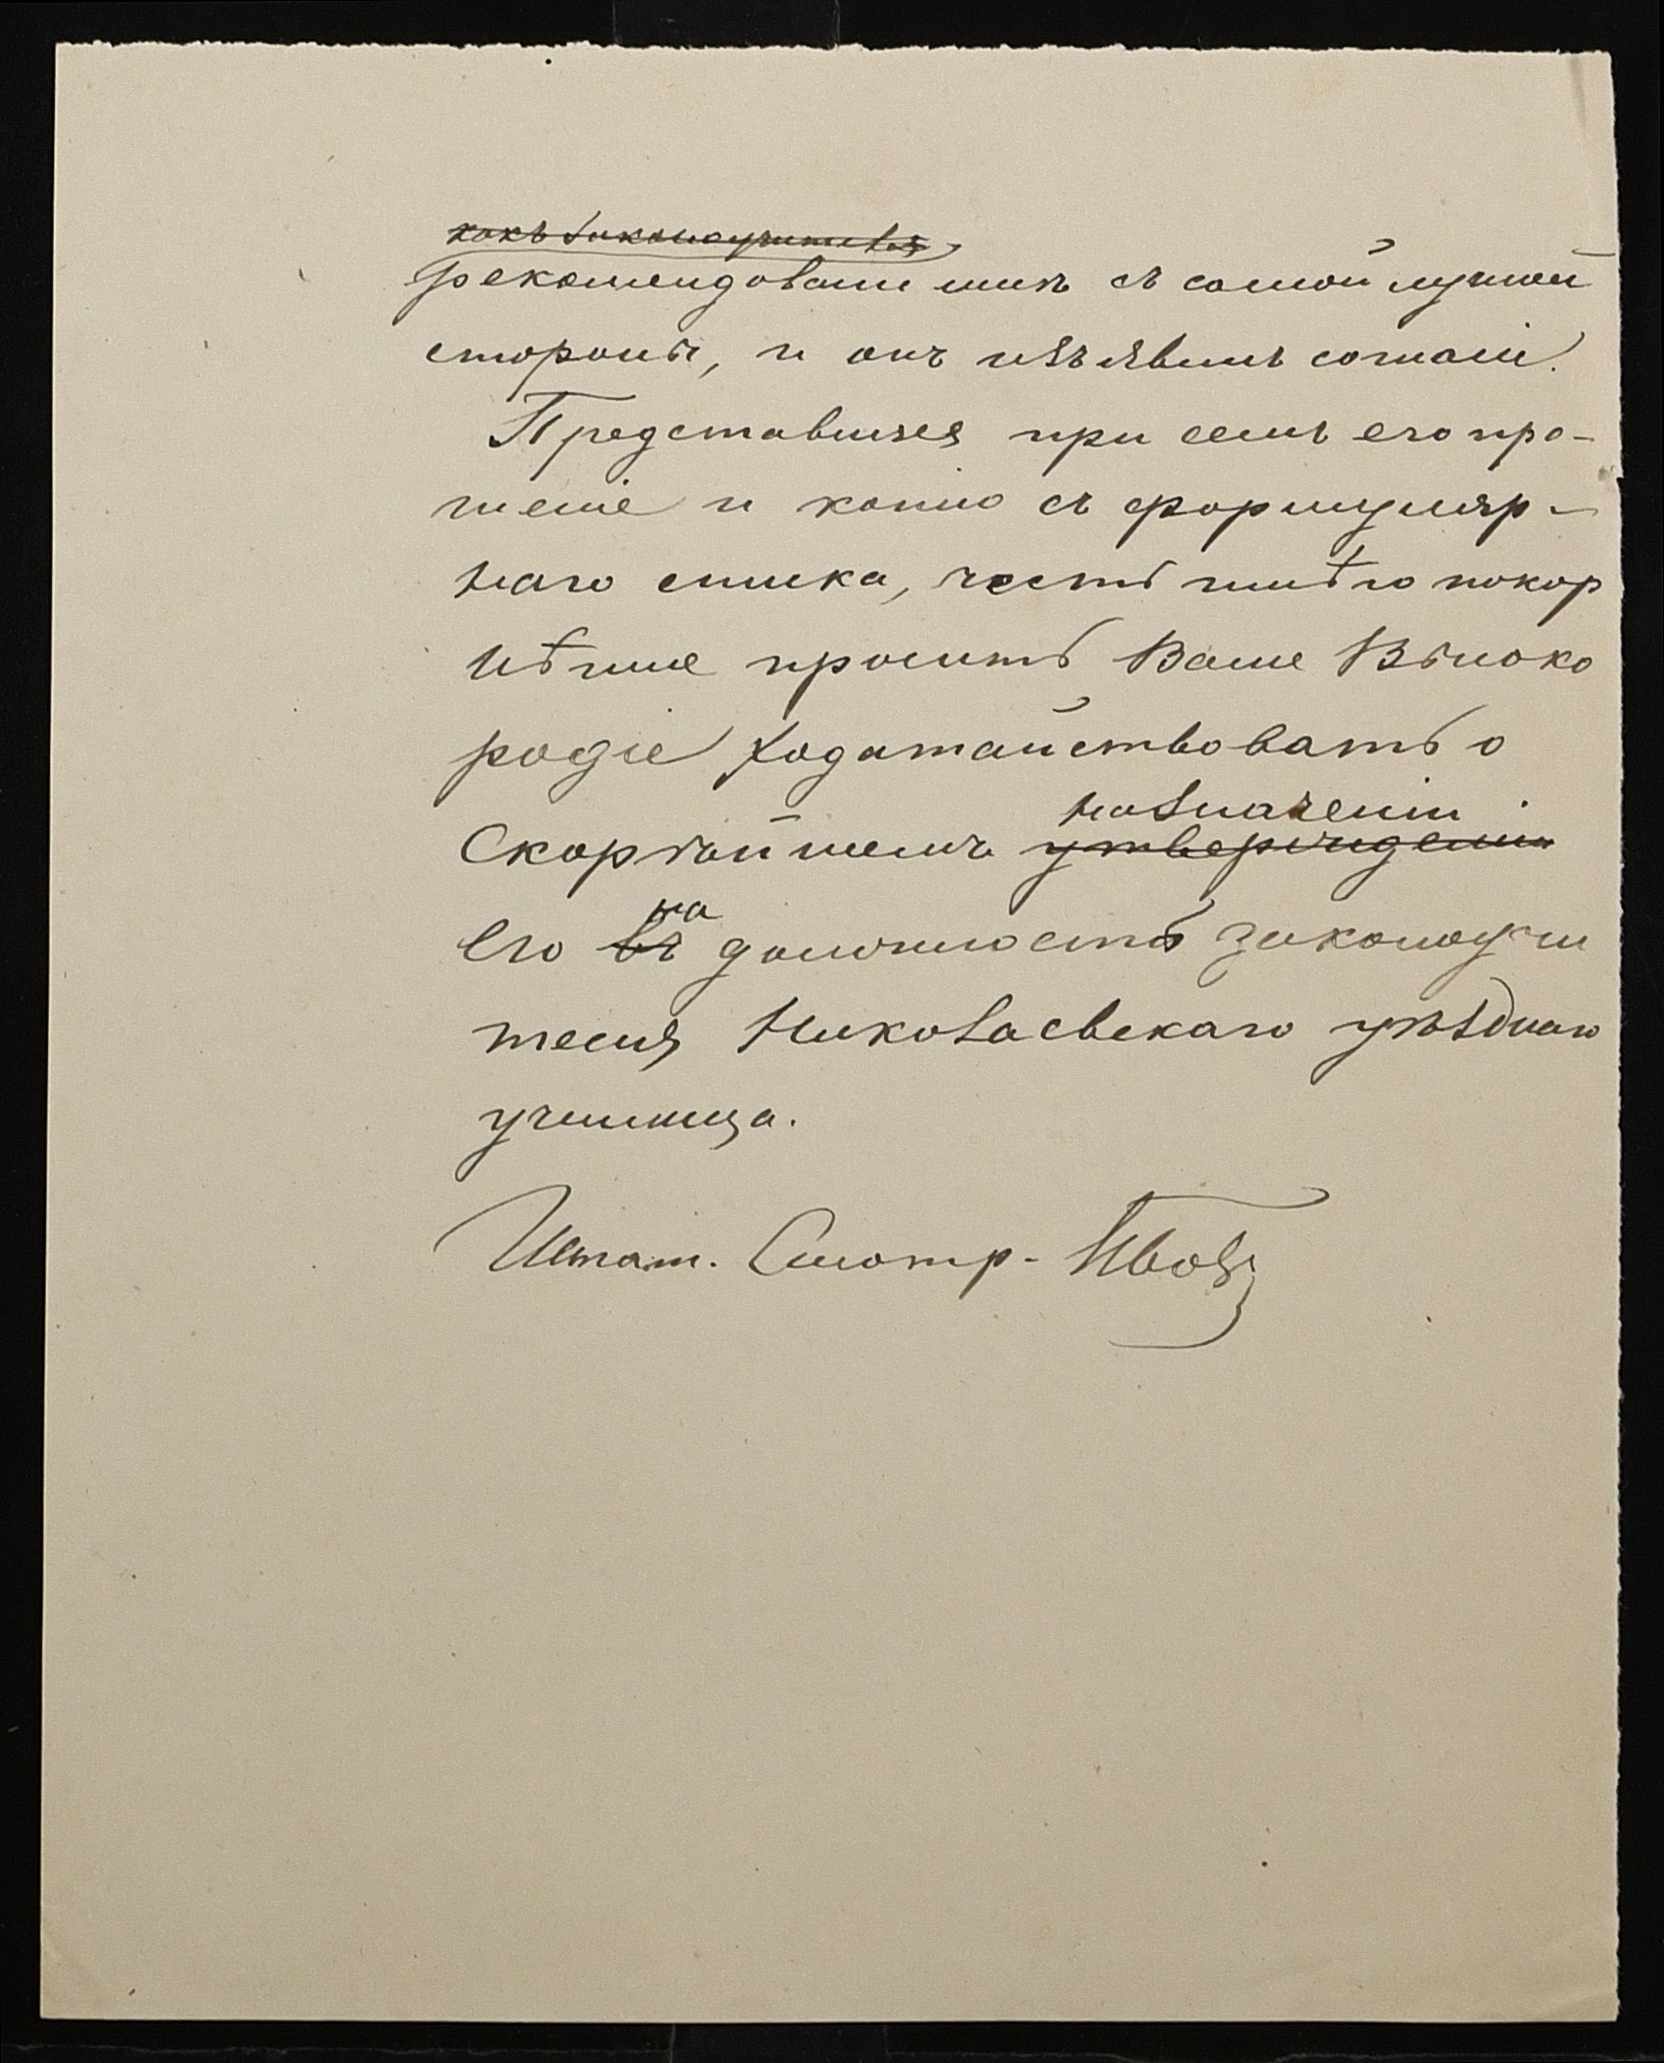 какъ законоучителя
рекомендовали мнѣ съ самой лучшей
стороны, и онъ изъявилъ согласіе.
Представляя при семъ его про-
шеніе и копію съ формуляр-
наго списка, честь имѣю покор
нѣйше просить Ваше Высоко
родіе ходатайствовать о
назначеніи
скорѣйшемъ утвержденіи
на
его въ должность законоучи
теля Николаевскаго уѣзднаго
училища.
Штат. Смотр.